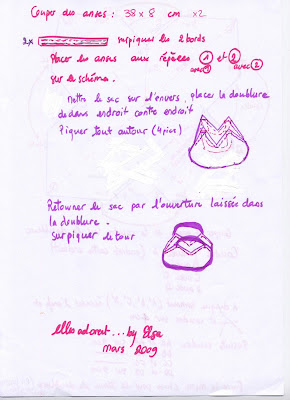 Couper des anses : 38 x 8 cm x2
2x surpiquer les 2 bords
Placer les anses aux repères 1 et 2
avec 1 avec 2
sur le schéma.
Mettre le sac sur l'envers, placer la doublure
dedans endroit contre endroit
Piquer tout autour (4 pics)
Retourner le sac par l'ouverture laissée dans
la doublure.
Surpiquer le tour
elles adorent...by Elsa
mars 2009